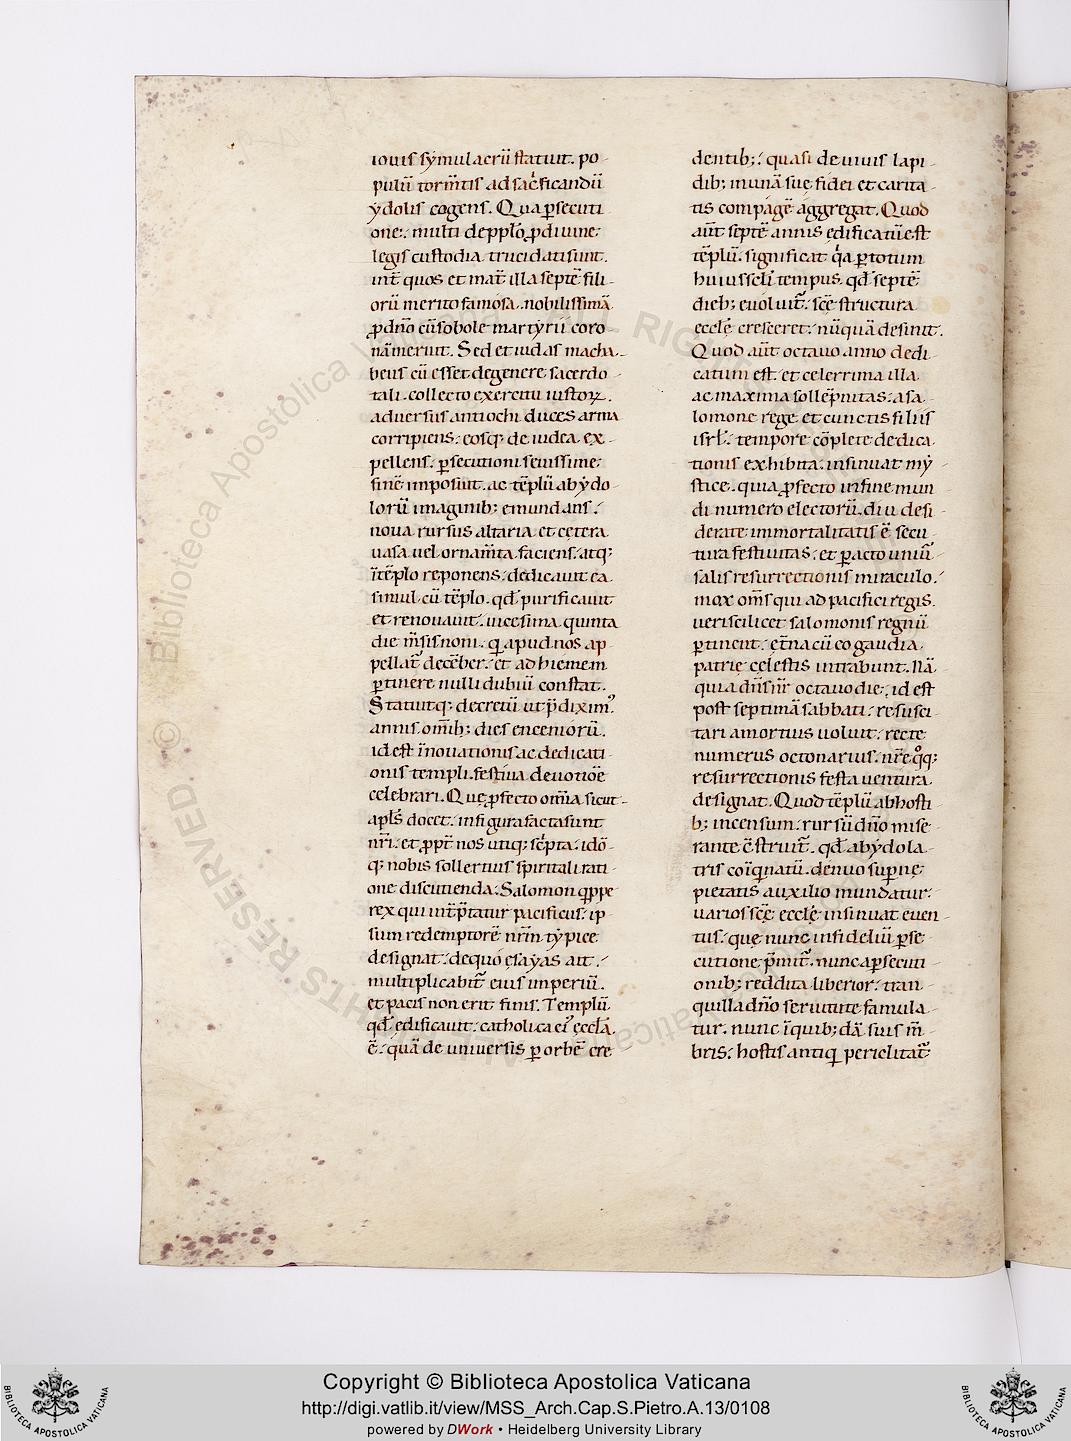 iouis sẏmulacrū statuit. po-
pulū torm̄tis ad sac͛ficandū
ẏdolis cogens. Qua ꝑsecuti-
one: multi de ppl̄o ꝓ diuine
legis custodia trucidati sunt.
int̄ quos et mat̄ illa septē fili-
orū merito famosa. nobilissimā
ꝓ dn̄o cū sobole martẏriū coro-
nā meruit. Sed et iudas macha-
beus cū esset de genere sacerdo-
tali. collecto exercitu iustoꝝ.
aduersus antiochi duces arma
corripiens: eosq; de iudea ex-
pellens. ꝑsecutioni seuissime:
finē imposuit. ac tēplū ab ẏdo-
lorū imaginib; emundans:
noua rursus altaria et cętera
uasa uel ornam̄ta faciens. atq;
ī tēplo reponens: dedicauit ea
simul cū tēplo. qd̄ purificauit
et renouauit. uicesima quinta
die m̄sis noni. qͥ apud nos ap-
pellat̄ decēber. et ad hiemem
ꝑtinere nulli dubiū constat.
Statuitq; decretū ut p̄diximꝰ
annis om̄ib; dies encemorū.
id est īnouationis ac dedicati-
onis templi. festiua deuotiōe
celebrari. Quę ꝓfecto om̄ia sicut
apl̄s docet: in figura facta sunt
nr̄i. et ꝓpt̄ nos utiq; sc͛pta. idō-
q; nobis sollertius spiritali rati-
one discutienda. Salomon qͥppe
rex qui int̄p̄tatur pacificus: ip-
sum redemptorē nr̄m tẏpice
designat: de quo ęsaẏas ait.
multiplicabit̄ eius imperiū.
et pacis non erit finis. Templū
qd̄ edificauit: catholica eiꝰ eccl̄a
ē. quā de uniuersis ꝑ orbē cre-
dentib; quasi de uiuis lapi-
dib; in unā suę fidei et carita-
tis compagē aggregat. Quod
aūt septē annis edificatū est
tēplū. significat qͥa ꝑ totum
huius scl̄i tempus. qd̄ septē
dieb; euoluit̄. scē structura
eccłę cresceret. nūquā desinit.
Quod aūt octauo anno dedi-
catum est. et celerrima illa
ac maxima sollēpnitas. a sa-
lomone rege et cunctis filiis
isrl̄. tempore cōplete dedica-
tionis exhibita. insinuat mẏ-
stice. quia ꝓfecto in fine mun-
di numero electorū. diu desi-
derate immortalitatis ē secu-
tura festiuitas. et ꝑacto uniū-
salis resurrectionis miraculo.
mox om̄s qui ad pacifici regis
ueri scilicet salomonis regnū
ꝑtinent. et̄na cū eo gaudia
patrię cęlestis intrabunt. Nā
quia dn̄s nr̄ octauo die. id est
post septimā sabbati. resusci-
tari a mortuis uoluit: recte
numerus octonarius. nr̄e qͦq;
resurrectionis festa uentura
designat. Quod tēplū ab hosti-
b; incensum. rursū dn̄o mise-
rante ēstruit̄. qd̄ ab ẏdola-
tris coīqͥnatū. denuo supn̄ę
pietatis auxilio mundatur.
uarios scę̄ eccłę insinuat euen-
tus. quę nunc infideliū ꝑse-
cutione p̄mit̄. nunc a ꝑsecuti-
onib; reddita liberior. tran-
quilla dn̄o seruitute famula-
tur. nunc ī quib;dā suis m̄-
bris: hostis antiqͥ periclitat̄
Copyright © Biblioteca Apostolica Vaticana
http://digi.vatlib.it/view/MSS_Arch.Cap.S.Pietro.A.13/0108
powered by DWork • Heidelberg University Library